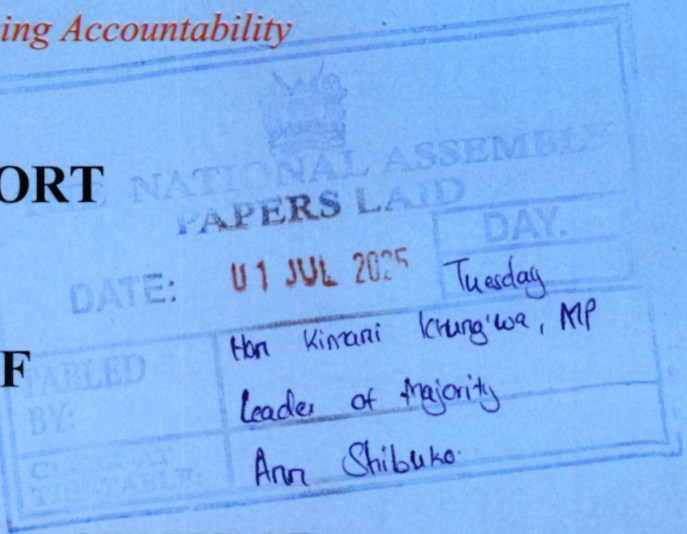 ing Accountability
ORT
THE NATIONAL ASSEMBLY
PAPERS LAID
DATE: 01 JUL 2025
DAY.
Tuesday
F
TABLED BY:
Hon Kimani Ichung'wa, MP
Leader of Majority
CLERK-AT THE-TABLE:
Ann Shibuko